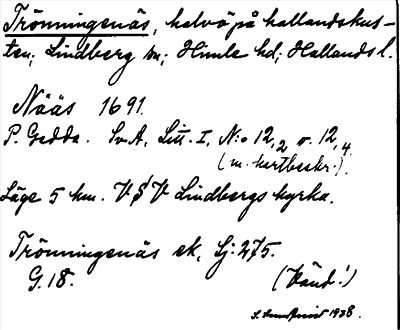 Trönningenäs, halvö på hallandskus-
ten; Lindberg sn; Himle hd; Hallands l.
Nääs 1691.
P. Gedda. Sv. A, Litt. I, N:o 12,2 o. 12,4.
(m. kartbeskr.).
Läge 5 km. V§V Lindbergs kyrka.
Trönningenäs ek, Lj: 275.
G. 18.
(Vänd!)
1938